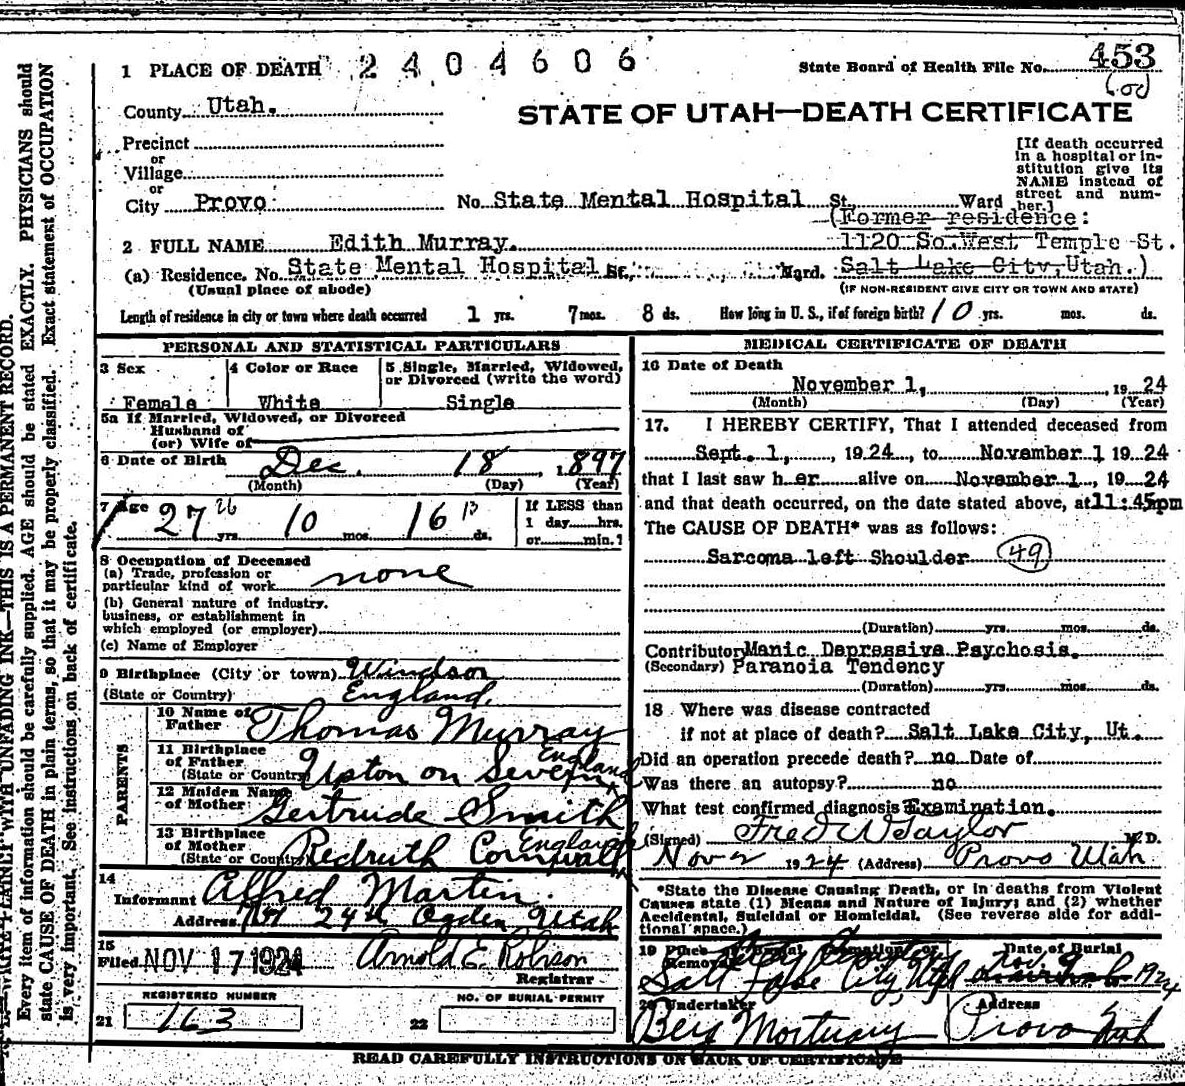 1 PLACE OF DEATH 2404606
State Board of Health File No. 453
County Utah.
STATE OF UTAH—DEATH CERTIFICATE
Precinct
or
Village
or
City Provo No. State Mental Hospital St. Ward
[If death occurred
in a hospital or in-
stitution give its
NAME instead of
street and num-
ber.]
(Former residence:
2 FULL NAME Edith Murray. 1120 So.West Temple St.
(a) Residence. No. State Mental Hospital St. Ward. Salt Lake City,Utah.)
(Usual place of abode) (IF NON-RESIDENT GIVE CITY OR TOWN AND STATE)
Length of residence in city or town where death occurred 1 yrs. 7 mos. 8 ds. How long in U. S., if of foreign birth? 10 yrs. mos. ds.
PERSONAL AND STATISTICAL PARTICULARS
3 Sex
Female
4 Color or Race
White
5 Single, Married, Widowed,
or Divorced (write the word)
Single
5a If Married, Widowed, or Divorced
Husband of
(or) Wife of
6 Date of Birth Dec. 18, 1897
(Month) (Day) (Year)
7 Age 27 26 yrs. 10 mos. 16 13 ds.
If LESS than
1 day hrs.
or min.?
8 Occupation of Deceased
(a) Trade, profession or
particular kind of work none
(b) General nature of industry,
business, or establishment in
which employed (or employer)
(c) Name of Employer
9 Birthplace (City or town) Windsor
(State or Country) England.
PARENTS
10 Name of
Father Thomas Murray
11 Birthplace
of Father
(State or Country) Upton on Severn England
12 Maiden Name
of Mother Gertrude Smith
13 Birthplace
of Mother
(State or Country) Redruth Cornwall England
14
Informant Alfred Martin.
Address 24th Ogden, Utah
15
Filed NOV 17 1924 Arnold E. Robison
Registrar
REGISTERED NUMBER
21 163
NO. OF BURIAL PERMIT
22
MEDICAL CERTIFICATE OF DEATH
16 Date of Death
November 1, 1924
(Month) (Day) (Year)
17. I HEREBY CERTIFY, That I attended deceased from
Sept. 1, 1924, to November 1 1924
that I last saw her alive on November 1, 1924
and that death occurred, on the date stated above, at 11:45pm
The CAUSE OF DEATH* was as follows:
Sarcoma left Shoulder 49
(Duration) yrs. mos. ds.
Contributory Manic Depressive Psychosis.
(Secondary) Paranoia Tendency
(Duration) yrs. mos. ds.
18 Where was disease contracted
if not at place of death? Salt Lake City, Ut.
Did an operation precede death? no Date of
Was there an autopsy? no
What test confirmed diagnosis? Examination.
(Signed) Fred W Taylor M.D.
Nov 2 1924 (Address) Provo Utah
*State the Disease Causing Death, or in deaths from Violent
Causes state (1) Means and Nature of Injury; and (2) whether
Accidental, Suicidal or Homicidal. (See reverse side for addi-
tional space.)
19 Place of Burial, Cremation or
Removal Salt Lake City, Utah
Date of Burial
Nov. 1924
20 Undertaker
Berg Mortuary
Address
Provo Utah
READ CAREFULLY INSTRUCTIONS ON BACK OF CERTIFICATE
WRITE PLAINLY WITH UNFADING INK—THIS IS A PERMANENT RECORD.
Every item of information should be carefully supplied. AGE should be stated EXACTLY. PHYSICIANS should
state CAUSE OF DEATH in plain terms, so that it may be properly classified. Exact statement of OCCUPATION
is very important. See instructions on back of certificate.